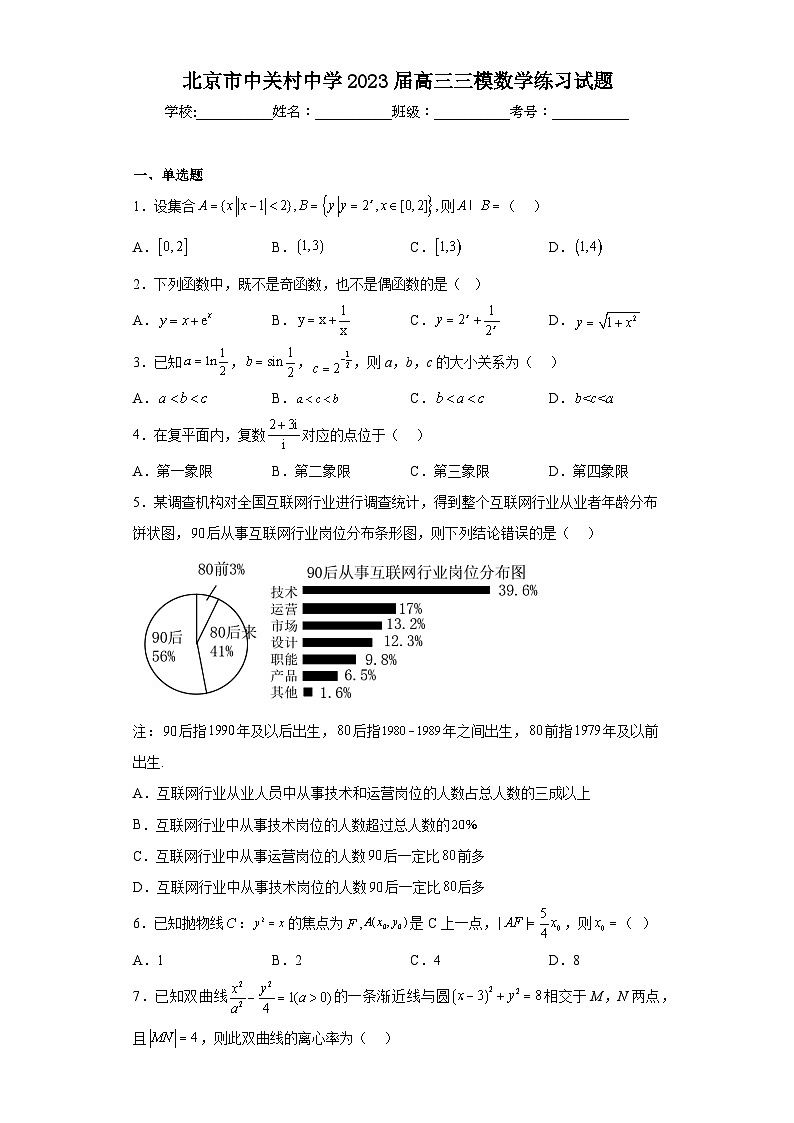 北京市中关村中学 2023 届高三三模数学练习试题
学校:___________姓名：___________班级：___________考号：___________
一、单选题
1．设集合 A = {x||x−1| < 2}, B = {y|y = 2^x, x∈[0, 2]},则 A I B =（ ）
A．[0, 2] B．(1,3) C．[1,3) D．(1,4)
2．下列函数中，既不是奇函数，也不是偶函数的是（ ）
A．y = x + e^x B．y = x + 1/x C．y = 2^x + 1/2^x D．y = √(1 + x²)
3．已知 a = ln 1/2，b = sin 1/2，c = 2^(−1/2)，则 a，b，c 的大小关系为（ ）
A．a < b < c B．a < c < b C．b < a < c D．b<c<a
4．在复平面内，复数 (2 + 3i)/i 对应的点位于（ ）
A．第一象限 B．第二象限 C．第三象限 D．第四象限
5．某调查机构对全国互联网行业进行调查统计，得到整个互联网行业从业者年龄分布
饼状图，90后从事互联网行业岗位分布条形图，则下列结论错误的是（ ）
80前3%
90后
56%
80后来
41%
90后从事互联网行业岗位分布图
技术 39.6%
运营 17%
市场 13.2%
设计 12.3%
职能 9.8%
产品 6.5%
其他 1.6%
注：90后指1990年及以后出生，80后指1980−1989年之间出生，80前指1979年及以前
出生.
A．互联网行业从业人员中从事技术和运营岗位的人数占总人数的三成以上
B．互联网行业中从事技术岗位的人数超过总人数的20%
C．互联网行业中从事运营岗位的人数90后一定比80前多
D．互联网行业中从事技术岗位的人数90后一定比80后多
6．已知抛物线 C：y² = x 的焦点为 F , A(x₀, y₀) 是 C 上一点，| AF |= 5/4 x₀，则 x₀ =（ ）
A．1 B．2 C．4 D．8
7．已知双曲线 x²/a² − y²/4 = 1(a > 0) 的一条渐近线与圆 (x − 3)² + y² = 8 相交于 M，N 两点，
且 |MN| = 4，则此双曲线的离心率为（ ）